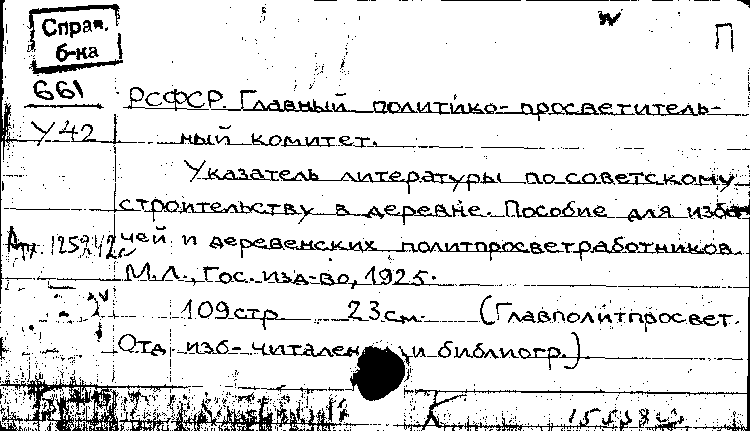 Справ.
б-ка
П
661
У42
РСФСР. Главный политико-просветитель-
ный комитет.
Указатель литературы по советскому
строительству в деревне. Пособие для изба-
чей и деревенских политпросветработников.
М.Л., Гос. изд-во, 1925.
109стр. 23см. (Главполитпросвет.
Отд. изб-читален и библиогр.).